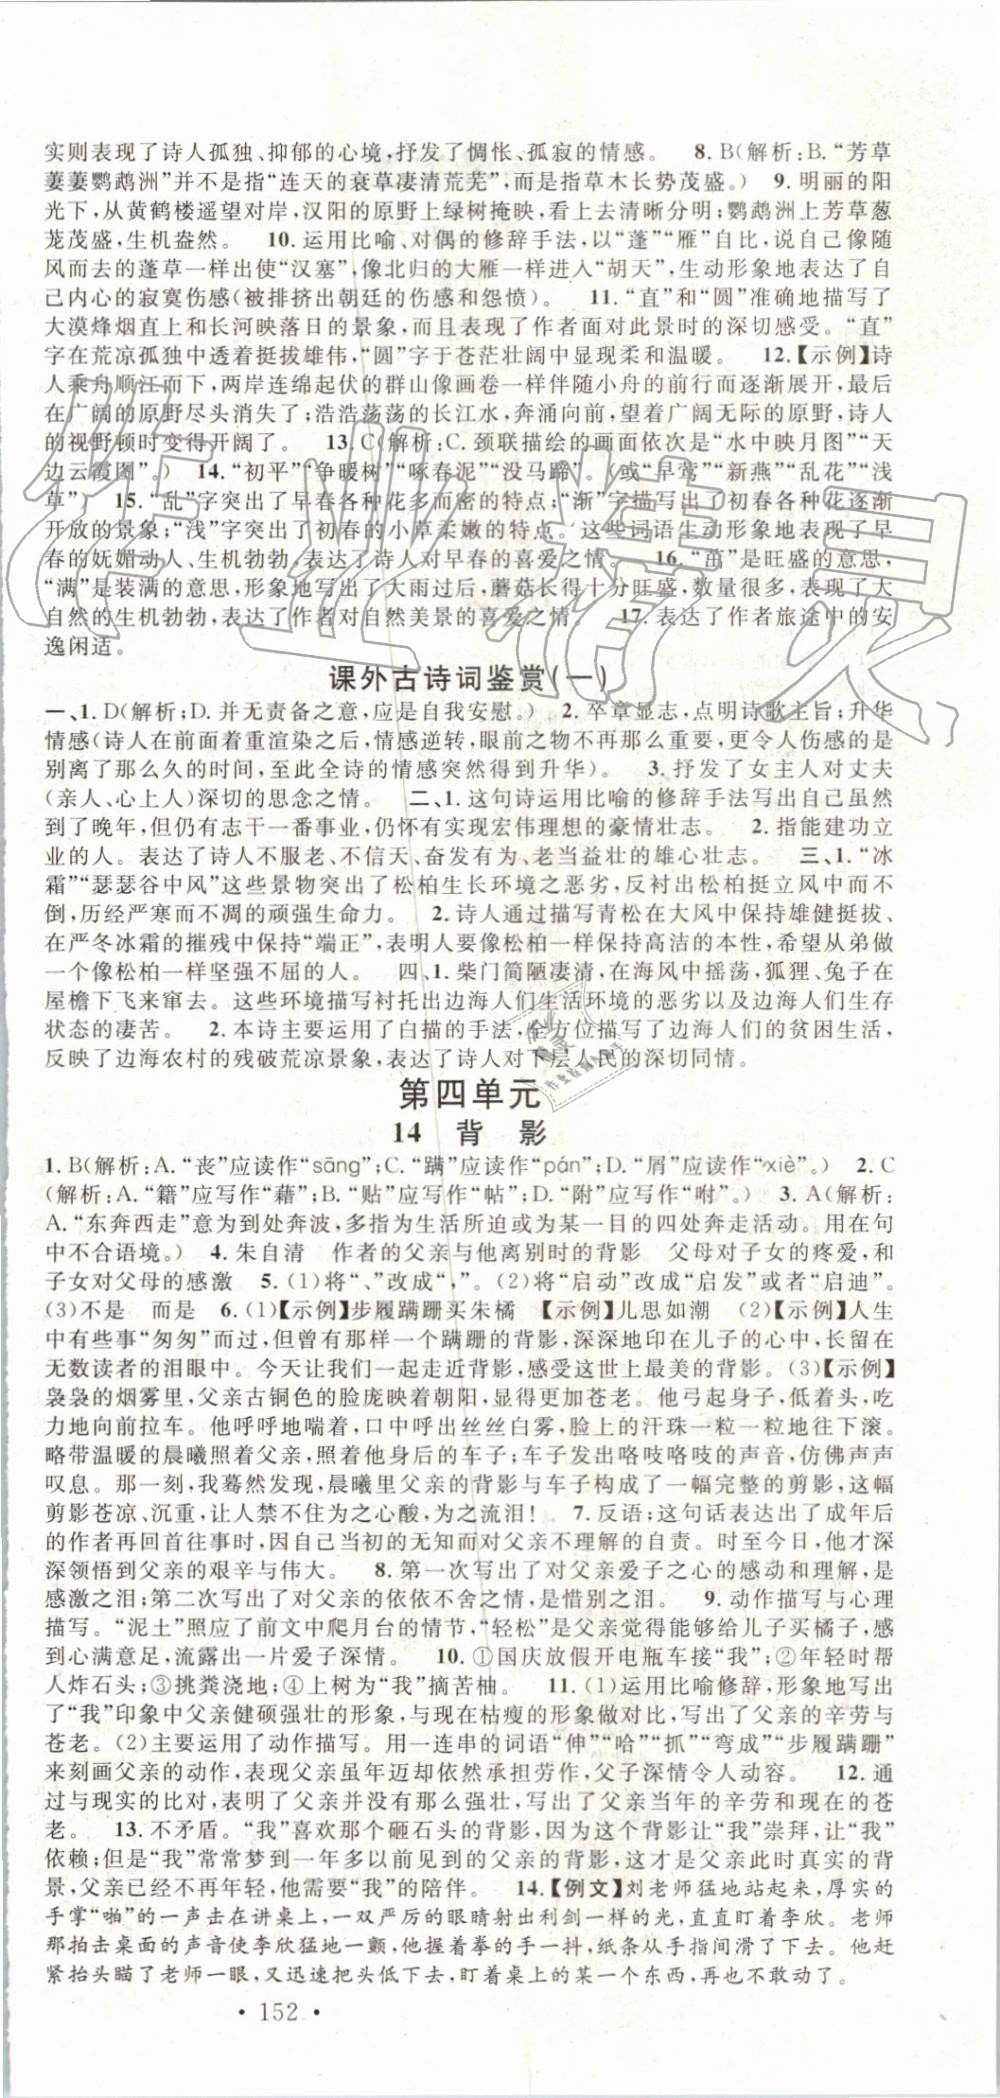 实则表现了诗人孤独、抑郁的心境,抒发了惆怅、孤寂的情感。 8. B(解析:B.“芳草
萋萋鹦鹉洲”并不是指“连天的衰草凄清荒芜”,而是指草木长势茂盛。) 9. 明丽的阳
光下,从黄鹤楼遥望对岸,汉阳的原野上绿树掩映,看上去清晰分明;鹦鹉洲上芳草葱
茏茂盛,生机盎然。 10. 运用比喻、对偶的修辞手法,以“蓬”“雁”自比,说自己像随
风而去的蓬草一样出使“汉塞”,像北归的大雁一样进入“胡天”,生动形象地表达了自
己内心的寂寞伤感(被排挤出朝廷的伤感和怨愤)。 11. “直”和“圆”准确地描写了
大漠烽烟直上和长河映落日的景象,而且表现了作者面对此景时的深切感受。“直”
字在荒凉孤独中透着挺拔雄伟,“圆”字于苍茫壮阔中显现柔和温暖。 12.【示例】诗
人乘舟顺江而下,两岸连绵起伏的群山像画卷一样随小舟的前行而逐渐展开,最后
在广阔的原野尽头消失了;浩浩荡荡的长江水,奔涌向前,望着广阔无际的原野,诗人
的视野顿时变得开阔了。 13. C(解析:C. 颈联描绘的画面依次是“水中映月图”“天
边云霞图”。) 14. “初平”“争暖树”“啄春泥”“没马蹄”。(或“早莺”“新燕”“乱花”“浅
草”) 15. “乱”字突出了早春各种花多而密的特点;“渐”字描写了初春各种花逐渐
开放的景象;“浅”字突出了初春的小草柔嫩的特点。这些词语生动形象地表现了早
春的妩媚动人、生机勃勃,表达了诗人对早春的喜爱之情。 16. “茁”是旺盛的意思,
“满”是装满的意思,形象地写出了大雨过后,蘑菇长得十分旺盛的特点,表现了大
自然的生机勃勃,表达了作者对自然美景的喜爱之情。 17. 表达了作者旅途中的安
逸闲适。
课外古诗词鉴赏(一)
一、1. D(解析:D. 并无责备之意,应是自我安慰。) 2. 卒章显志,点明诗歌主旨;升华
情感(诗人在前面着重渲染之后,情感逆转,眼前之物不再重要,更令人感伤的是
别离了那么久的时间,至此全诗的情感突然得到升华)。 3. 抒发了女主人对丈夫
(亲人、心上人)深切的思念之情。 二、1. 这句诗运用比喻的修辞手法写出自己虽然
到了晚年,但仍有志干一番事业,仍怀有实现宏伟理想的豪情壮志。 2. 指能建功立
业的人。表达了诗人不服老、不信天、奋发有为、老当益壮的雄心壮志。 三、1. “冰
霜”“瑟瑟谷中风”这些景物突出了松柏生长环境之恶劣,反衬出松柏挺立风中而不
倒,历经严寒而不凋的顽强生命力。 2. 诗人通过描写青松在大风中保持雄健挺拔、
在严冬冰霜的摧残中保持“端正”,表明人要像松柏一样保持高洁的本性,希望从弟做
一个像松柏一样坚强不屈的人。 四、1. 柴门简陋凄清,在海风中摇荡,狐狸、兔子在
屋檐下飞来窜去。这些环境描写衬托出边海人们生活环境的恶劣以及边海人们生存
状态的凄苦。 2. 本诗主要运用了白描的手法,全方位描写了边海人们的贫困生活,
反映了边海农村的残破荒凉景象,表达了诗人对下层人民的深切同情。
第四单元
14 背 影
1. B(解析:A. “丧”应读作“sāng”;C. “蹒”应读作“pán”;D. “屑”应读作“xiè”。) 2. C
(解析:A. “籍”应写作“藉”;B. “贴”应写作“帖”;D. “附”应写作“咐”。) 3. A(解析:
A. “东奔西走”意为到处奔波,多指为生活所迫或为某一目的四处奔走活动。用在句
中不合语境。) 4. 朱自清 作者的父亲与他离别时的背影 父母对子女的疼爱,和
子女对父母的感激 5. (1)将“、”改成“,”。(2)将“启动”改成“启发”或者“启迪”。
(3)不是 而是 6. (1)【示例】步履蹒跚买朱橘 【示例】儿思如潮 (2)【示例】人生
中有些事“匆匆”而过,但曾有那样一个蹒跚的背影,深深地印在儿子的心中,长留在
无数读者的泪眼中。今天让我们一起走近背影,感受这世上最美的背影。(3)【示例】
袅袅的烟雾里,父亲古铜色的脸庞映着朝阳,显得更加苍老。他弓起身子,低着头,吃
力地向前拉车。他呼呼地喘着,口中呼出丝丝白雾,脸上的汗珠一粒一粒地往下滚。
略带温暖的晨曦照着父亲,照着他身后的车子;车子发出咯吱咯吱的声音,仿佛声声
叹息。那一刻,我蓦然发现,晨曦里父亲的背影与车子构成了一幅完整的剪影,这幅
剪影苍凉、沉重,让人禁不住为之心酸,为之流泪! 7. 反语;这句话表达出了成年后
的作者再回首往事时,因自己当初的无知而对父亲不理解的自责。时至今日,他才深
深领悟到父亲的艰辛与伟大。 8. 第一次写出了对父亲爱子之心的感动和理解,是
感激之泪;第二次写出了对父亲的依依不舍之情,是惜别之泪。 9. 动作描写与心理
描写。“泥土”照应了前文中爬月台的情节,“轻松”是父亲觉得能够给儿子买橘子,感
到心满意足,流露出一片爱子深情。 10. ①国庆放假开电瓶车接“我”;②年轻时帮
人炸石头;③挑粪浇地;④上树为“我”摘苦柚。 11. (1)运用比喻修辞,形象地写出
“我”印象中父亲健硕强壮的形象,与现在枯瘦的形象做对比,写出了父亲的辛劳与
苍老。(2)主要运用了动作描写。用一连串的词语“伸”“哈”“抓”“弯成”“步履蹒跚”
来刻画父亲的动作,表现父亲虽年迈却依然承担劳作,父子深情令人动容。 12. 通
过与现实的比对,表明了父亲并没有那么强壮,写出了父亲当年的辛劳和现在的苍
老。 13. 不矛盾。“我”喜欢那个砸石头的背影,因为这个背影让“我”崇拜,让“我”
依赖;但是“我”常常梦到一年多以前见到的父亲的背影,这才是父亲此时真实的背
景,父亲已经不再像当年那样健硕,需要“我”的陪伴。 14.【例文】刘老师猛地站起来,厚实的
手掌“啪”的一声击在讲桌上,一双严厉的眼睛射出利剑一样的光,直直盯着李欣。老师
那拍击桌面的声音使李欣猛地一颤,他握着拳的手一抖,纸条从手指间滑了下去。他赶
紧抬头瞄了老师一眼,又迅速把头低下去,盯着桌上的某一个东西,再也不敢动了。
• 152 •
作业精灵